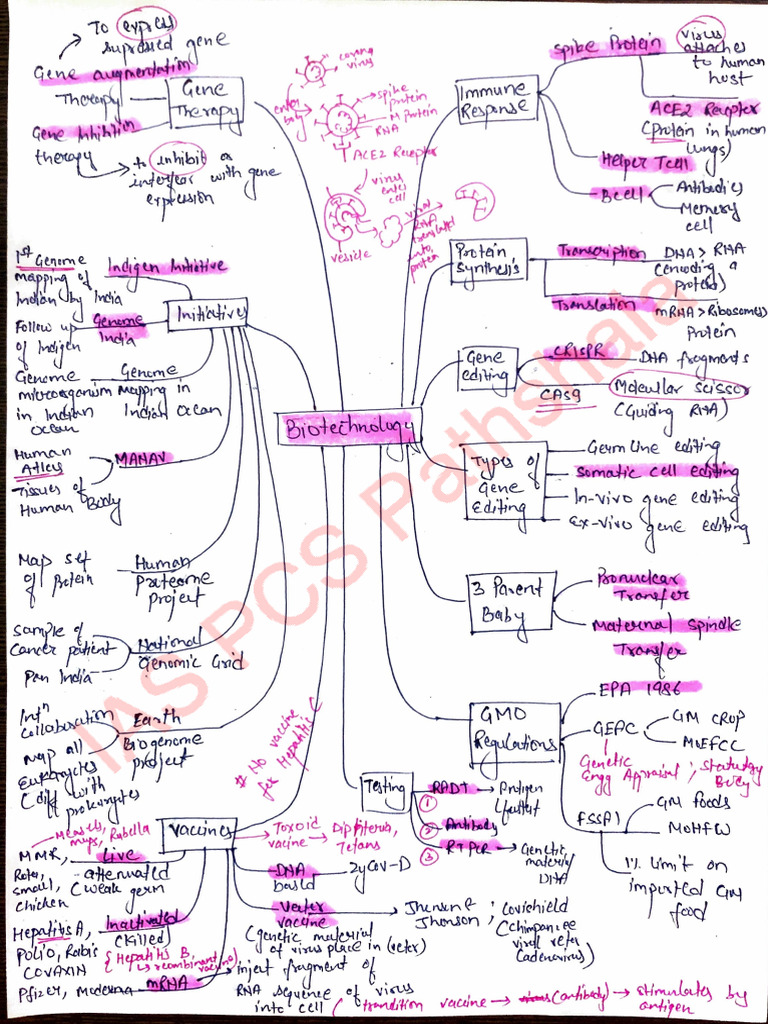 To express
supressed gene
Gene augmentation
Therapy
Gene Therapy
Gene Inhibition
therapy
to inhibit or
interfear with gene
expression
corona
virus
enter
body
Spike
protein
M protein
RNA
ACE2 Receptor
virus
enter
cell
vesicle
viral
RNA
translated
into
protein
Immune
Response
Spike Protein
virus
attaches
to human
host
ACE2 Receptor
(protein in human
lungs)
Helper Tcell
Bcell
Antibodies
Memory
cell
Protein
Synthesis
Transcription
DNA > RNA
(encoding a
Protein)
Translation
mRNA > Ribosomes
Protein
Gene
editing
CRISPR
DNA fragments
CAS9
Molecular Scissor
(Guiding RNA)
Biotechnology
Types of
Gene
Editing
Germ line editing
Somatic cell editing
In-vivo gene editing
Ex-vivo gene editing
3 Parent
Baby
Pronuclear
Transfer
Maternal Spindle
Transfer
GMO
Regulations
EPA 1986
GEAC
GM CROP
MoEFCC
Genetic
Engg Appraisal ; Statutory
Body
FSSAI
GM foods
MoHFW
1% limit on
imported GM
food
Initiatives
Indigen Initiative
1st Genome
mapping of
Indian by India
Genome
India
Follow up
of Indigen
Genome
mapping in
Indian Ocean
Genome
microorganism
in Indian
Ocean
MANAV
Human
Atlas
Tissues of
Human Body
Human
Proteome
project
Map set
of Protein
National
Genomic Grid
Sample of
Cancer patient
Pan India
Earth
Biogenome
project
Intn
Collaboration
Map all
Eukaryotes
(diff with
prokaryotes
# No vaccine
for Hepatitis C
Testing
RADT
①
Antigen
②
Antibody
③
RTPCR
Genetic
material
DNA
Vaccines
Toxoid
vaccine
Diptheria,
Tetans
DNA
based
ZyCov-D
Vector
vaccine
Jhonson &
Jhonson
Covishield
(Chimpanzee
viral
(adenovirus)
(genetic material
of virus place in
Measels,
Rubella
MMR,
Live
attenuated
(weak germ
Rota,
small,
chicken
Hepatitis A,
Inactivated
(killed)
Polio, Rabis
COVAXIN
{Hepatitis B,
recombinant
vaccine}
Pfizer, Moderna
mRNA
inject fragment of
RNA sequence of virus
into cell
vaccine
(antibody)
stimulates by
antigen
IAS PCS Pathshala